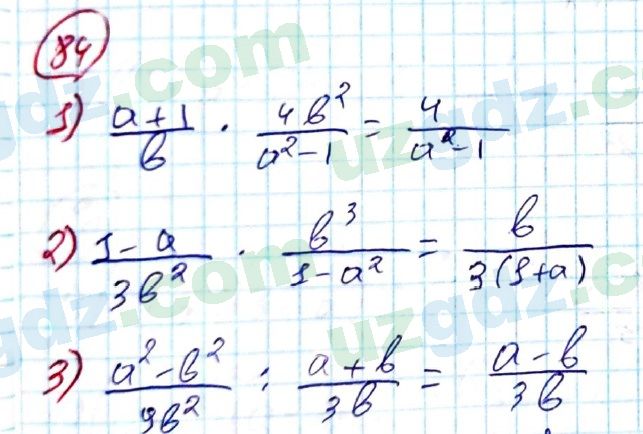 84
1) (a+1)/b · 4b²/(a²-1) = 4/(a²-1)
2) (1-a)/(3b²) · b³/(1-a²) = b/(3(1+a))
3) (a²-b²)/(9b²) : (a+b)/(3b) = (a-b)/(3b)
uzgdz.com
uzgdz.com
uzgdz.com
uzgdz.com